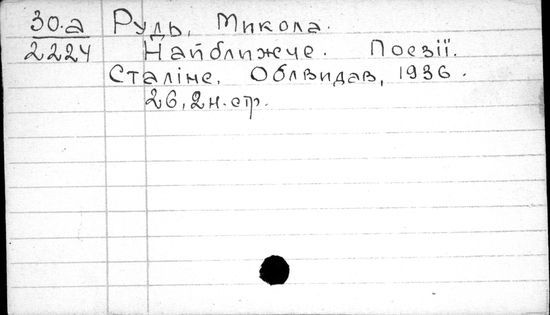 30.а Рудь, Микола.
2224 Найближче. Поезії.
Сталіне, Облвидав, 1936.
26, 2н. стр.